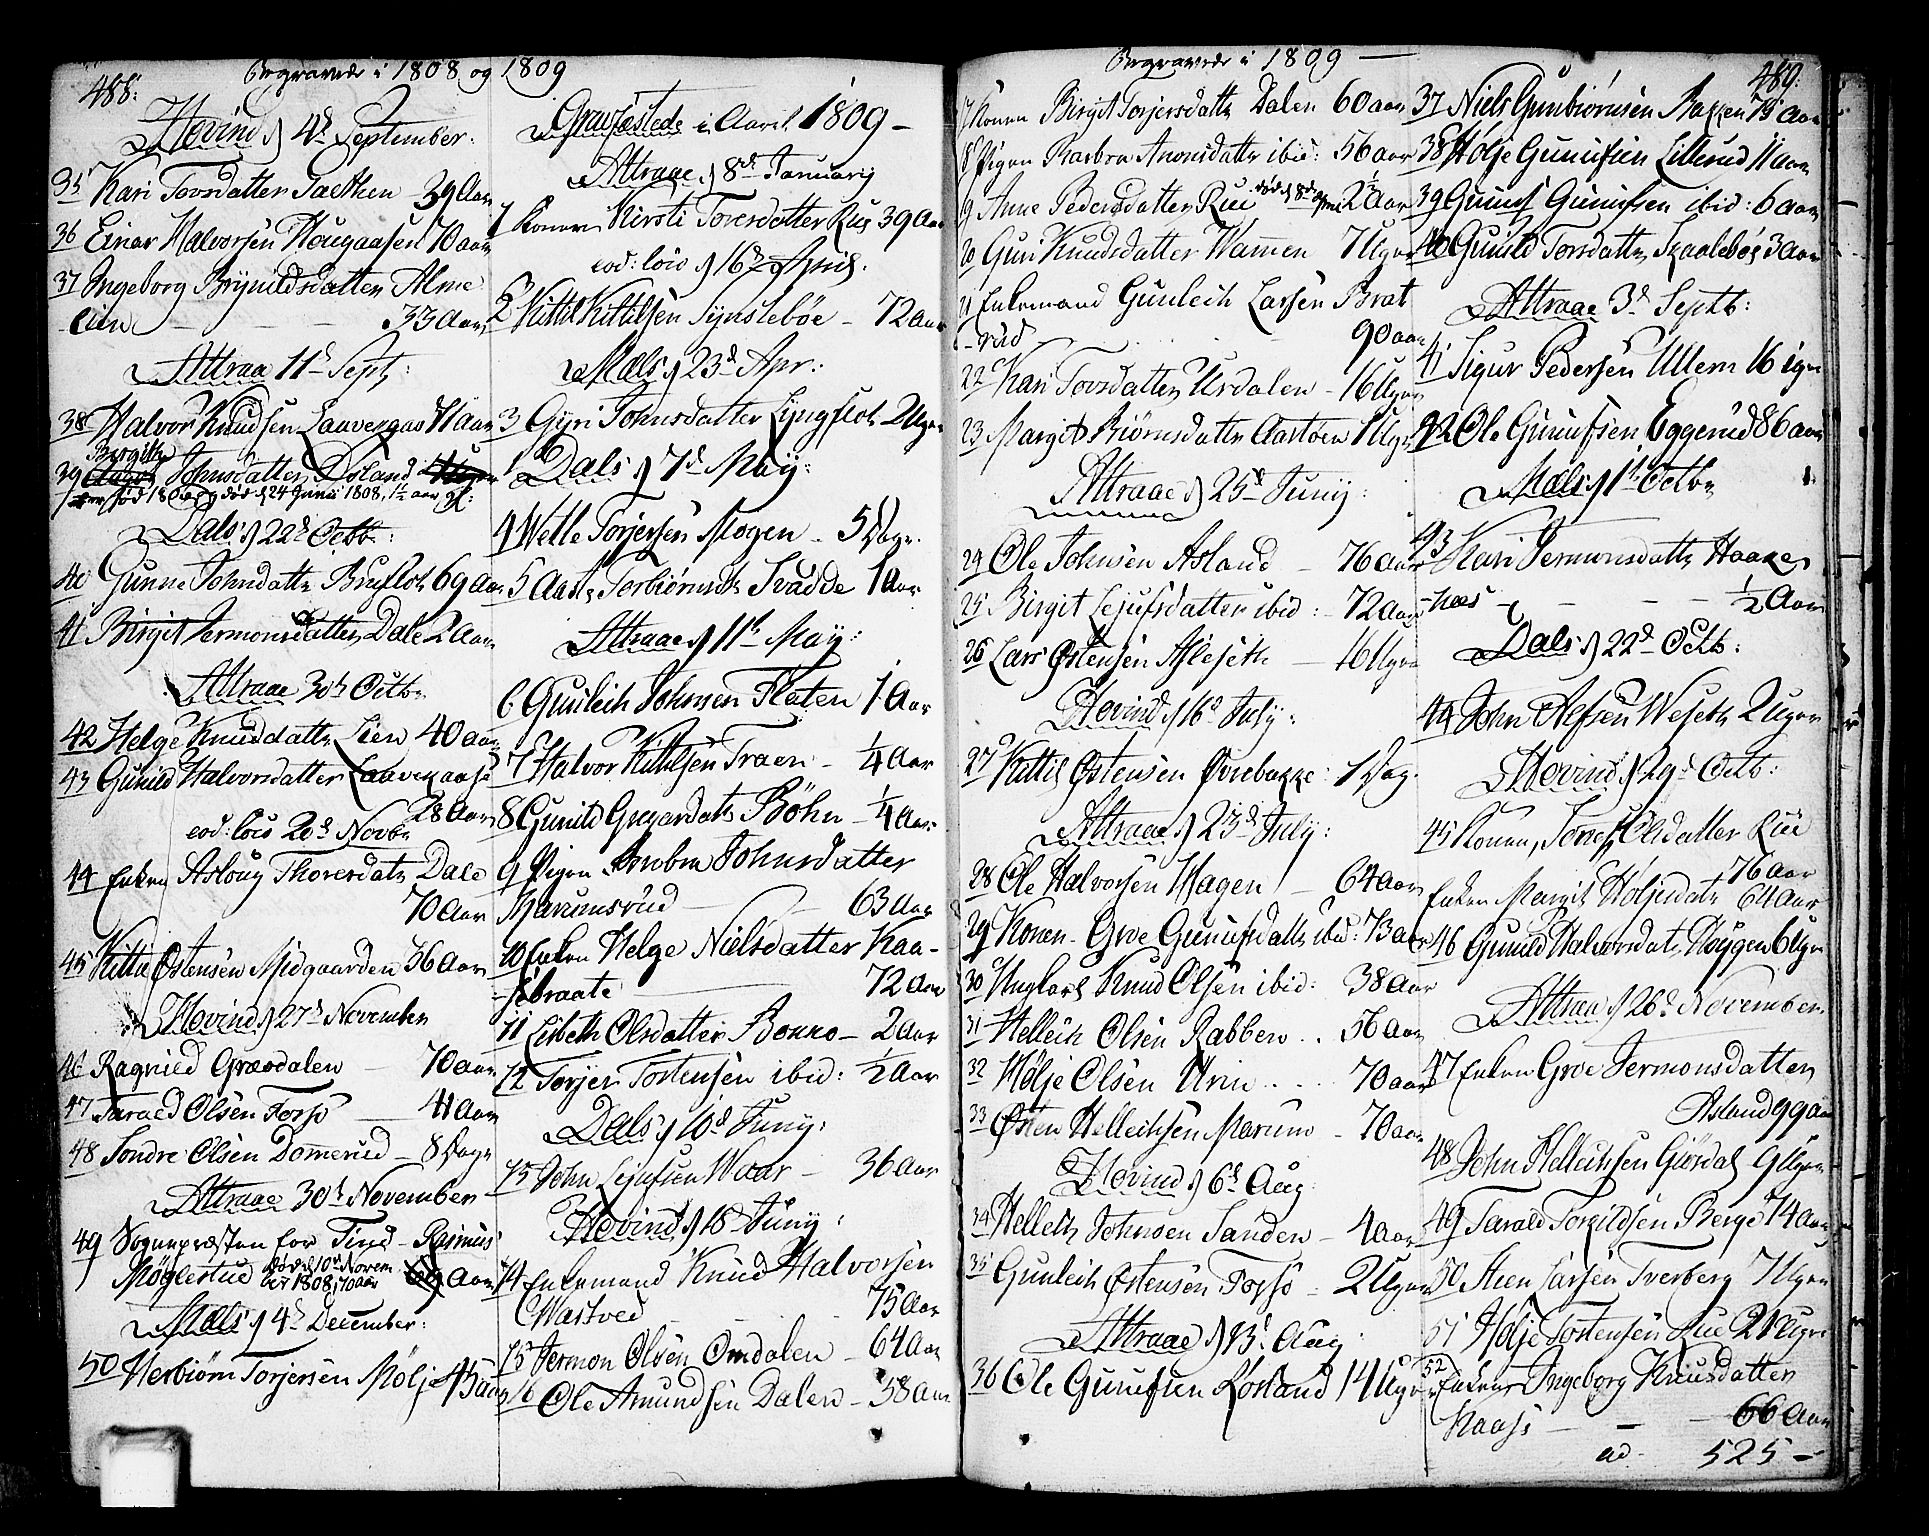 488:
Begravede i 1808 og 1809
Hovind d 4d September:
35 Kari Tovsdatter Sæthen - 39 Aar
36 Einar Halvorsen Hougaasen 70 aar
37 Ingeborg Brynildsdatter Alme
-lien - - - 33 Aar
Attraa 11d Septb:
38 Halvor Knudsen Laavegaas 11 aar
Birgith
39 Johnsdatter Døland
død d 24 Junii 1808, 1½ aar gl:
Dals d 22d Octb:
40 Gunne Johnsdatter Bruflot 69 aar
41 Birgit Jermonsdatter Dale 2 Aar
Attraae 30d Octbr
42 Helge Knudsdatter Lien 40 aar
43 Gunild Halvorsdatter Laavegaase
28 Aar
eod: loco 20d Novbr
44 Enken Asloug Thoresdatr Dale
70 Aar
45 Kittil Østensen Midgaarden 36 Aar
Hovind d 27d November
46 Ragnild Græsdalen - 70 aar
47 Tarald Olsen Forsø - 41 Aar
48 Sondre Olsen Domerud - 8 Dage
Attraae 30d November
49 Sognepræsten for Tind - Rasmus
Møglestud død d 10d Novem
ber 1808, 70 aar
Mæls d 4d December:
50 Herbiørn Torjersen Mølje 45 aar
Gravfæstede i Aaret 1809 -
Attraae d 8d Januarij
1 Konen Kirsti Toresdatter Rue 39 Aar
eod: loco d 16d April.
2 Kittil Kittilsen Synstebøe - 72 Aar
Mæls d 23d Apr:
3 Gyri Johnsdatter Lyngflot 2 Uger
Dals d 7d May:
4 Wetle Torjersen Mogen - 5 Dage
5 Aaste Torbiørnsdr Svadde 1 Aar
Attraae d 11te May:
6 Gunleich Johnsen Flaten 1 Aar
7 Halvor Kittilsen Traen - ¼ Aar
8 Gunild Gregardatr Böhn - ¼ Aar
9 Pigen Barbra Johnsdatter
Marumsrud - - 63 Aar
10 Enken Helge Nielsdatter Kaa-
-sebraate - 72 Aar
11 Lisbeth Olsdatter Bonno - 2 Aar
12 Torjer Tostensen ibid: ½ Aar
Dals d 10d Juny:
13 John Lejufsen Waar - 36 Aar
Hovind d 18d Juny:
14 Enkemand Knud Halvorsen
Wastved - 75 Aar
15 Jermon Olsen Omdalen - 64 Aar
16 Ole Amundsen Dalen - 58 Aar
Begravede i 1809 -
489.
17 Konen Birgit Torjersdattr Dalen 60 aar
18 Pigen Barbra Anonsdattr ibid: 56 aar
19 Anne Pedersdatter Rue død d 8d 2½ Aar
20 Guri Knudsdatter Wamen 7 Uger
21 Enkemand Gunleich Larsen Brat
-rud - 90 aar
22 Kari Tovsdatter Urdalen - 16 Uger
23 Margit Biörnsdattr Aastöen 1 Uge
Attraae d 25d Junij:
24 Ole Johnsen Asland - 76 Aar
25 Birgit Lejufsdatter ibid: - 72 aar
26 Lars Østensen Asleseth - 16 Uger
Hovind d 16d July:
27 Kittil Østensen Øvrebakke: 1 Dag
Attraae d 23d July:
28 Ole Halvorsen Hagen - 64 aar
29 Konen Groe Gunufsdattr ibid: 73 aar
30 Ungkarl Knud Olsen ibid: 38 Aar
31 Helleik Olsen Rabben .. 56 aar
32 Hölje Olsen Urin .... 70 aar
33 Østen Helleichsen Marum - 70 aar
Hovind d 6d Aug
34 Helleik Johnsen Sanden - 4 aar
35 Gunleik Østensen Forsö - 2 Uger
Attraae d 13d Aug
36 Ole Gunufsen Rosland 14 Uger
37 Niels Gunbiørnsen Bakken 75 aar
38 Hølje Gunufsen Lillerud 11 aar
39 Gunuf Gunufsen ibid: 6 aar
40 Gunild Torsdatter Skaalebøe 3 aar
Attraae 3d Septb:
41 Sigur Pedersen Ullern 16 Uger
42 Ole Gunufsen Eggerud 86 aar
Mæls d 1te Octbr
43 Kari Jermonsdattr Haake
-næs - - - ½ Aar
Dals d 22d Octb:
44 John Alfsen Weseth 2 Uger
Hovind d 29d Octb:
45 Konen, Tone Olsdatter Rue
76 aar
Enken Margit Høljesdatr 64 aar
46 Gunild Halvorsdatr Høygen 6 Uger
Attraae d 26d November
47 Enken Groe Jermonsdatter
Asland 99 aar
48 John Helleichsen Giøsdal 9 Uger
49 Tarald Torkildsen Berge 14 aar
50 Sten Larsen Tverberg 7 Uger
51 Hølje Tostensen Rue 21 Uger
52 Enken Ingeborg Knudsdatter
Kaase - - 66 Aar
ad. 525 -